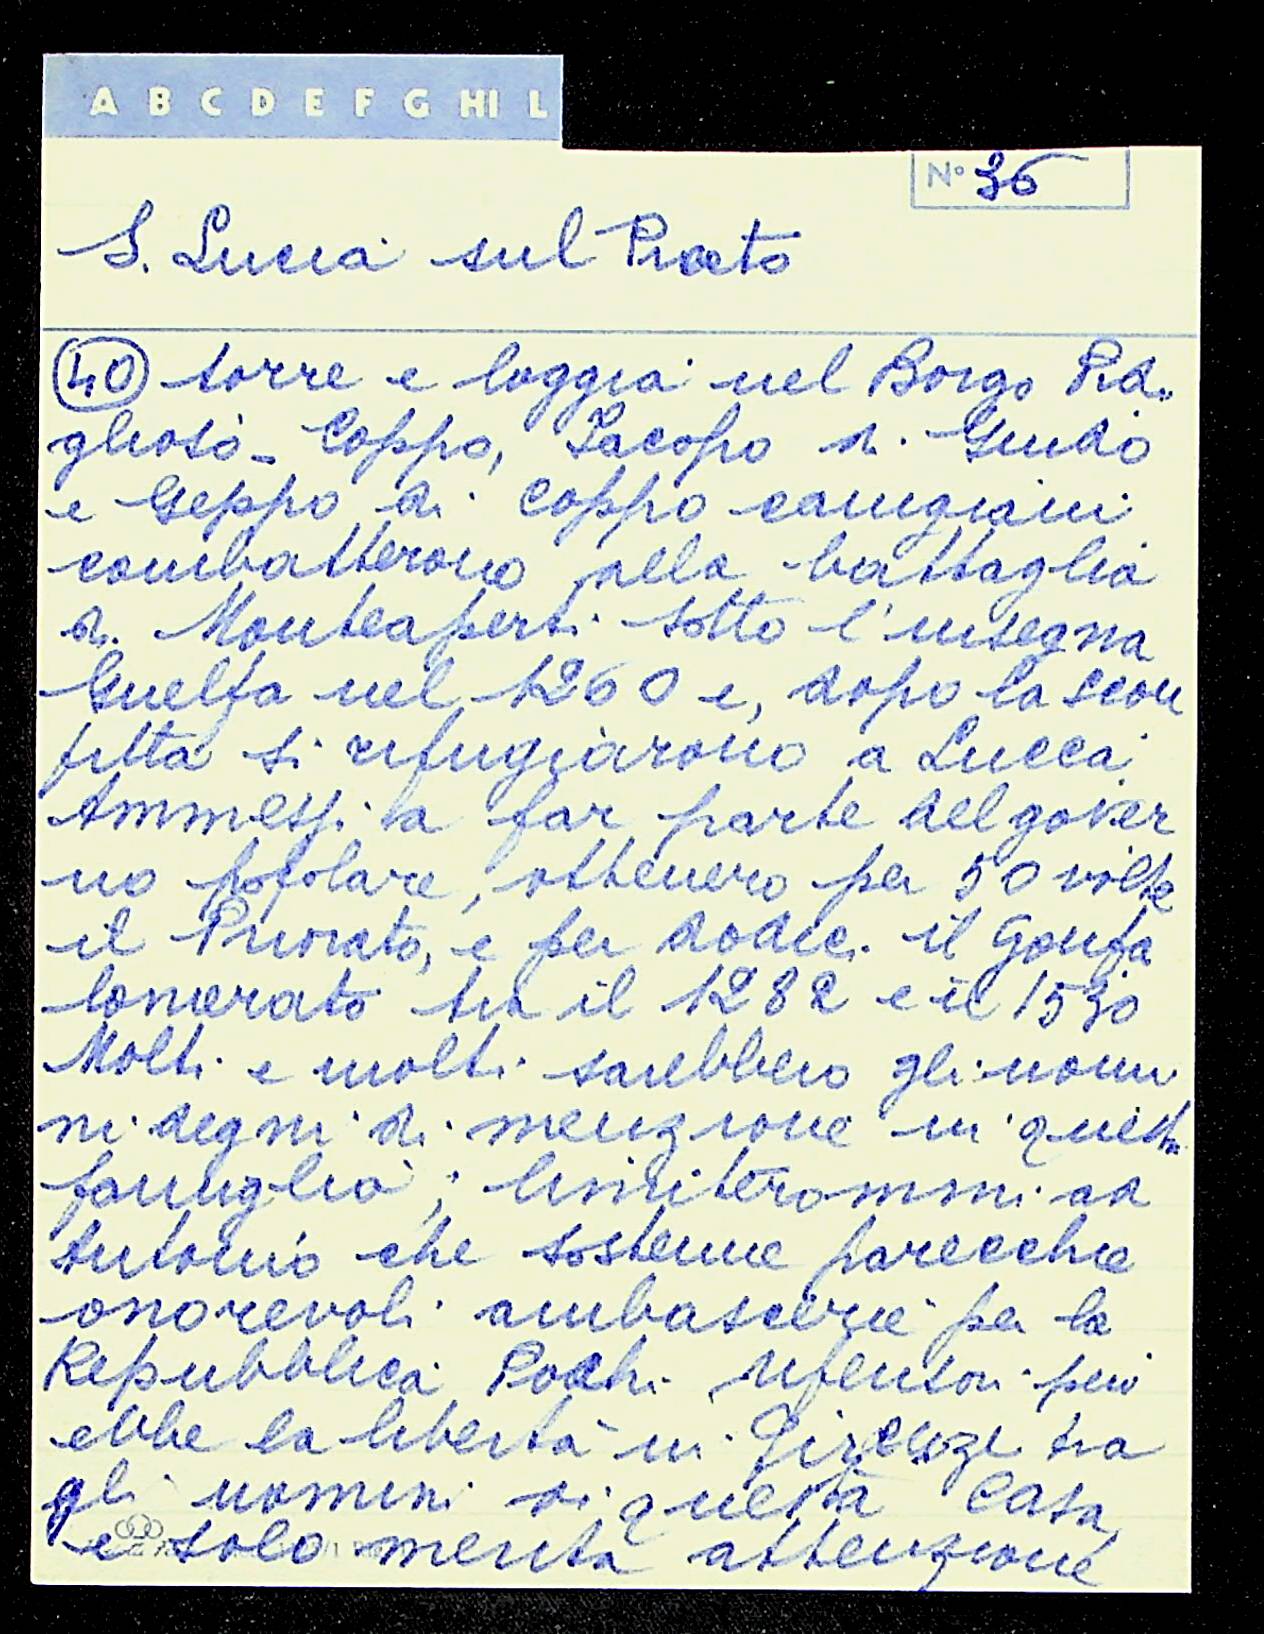 A B C D E F G HI L
N° 36
S. Lucia sul Prato
40 torre e loggia nel Borgo Pid.
glioso - Coppo, Jacopo di Guido
e Geppo di Coppo canigiani
combatterono alla battaglia
di Monteaperti sotto l'insegna
Guelfa nel 1260 e, dopo la scon
fitta si rifugiarono a Lucca
Ammessi a far parte del gover
no popolare, ottenero per 50 volte
il Priorato, e per dodici il Gonfa
lonierato tra il 1282 e il 1530
Molti e molti sarebbero gli uomi
ni degni di menzione in questa
famiglia; limiterommi ad
Antonio che sostenne parecchie
onorevoli ambascerie per la
Repubblica Pochi difensori più
ebbe la libertà in Firenze tra
gli uomini di questa Casa,
e solo merita attenzione